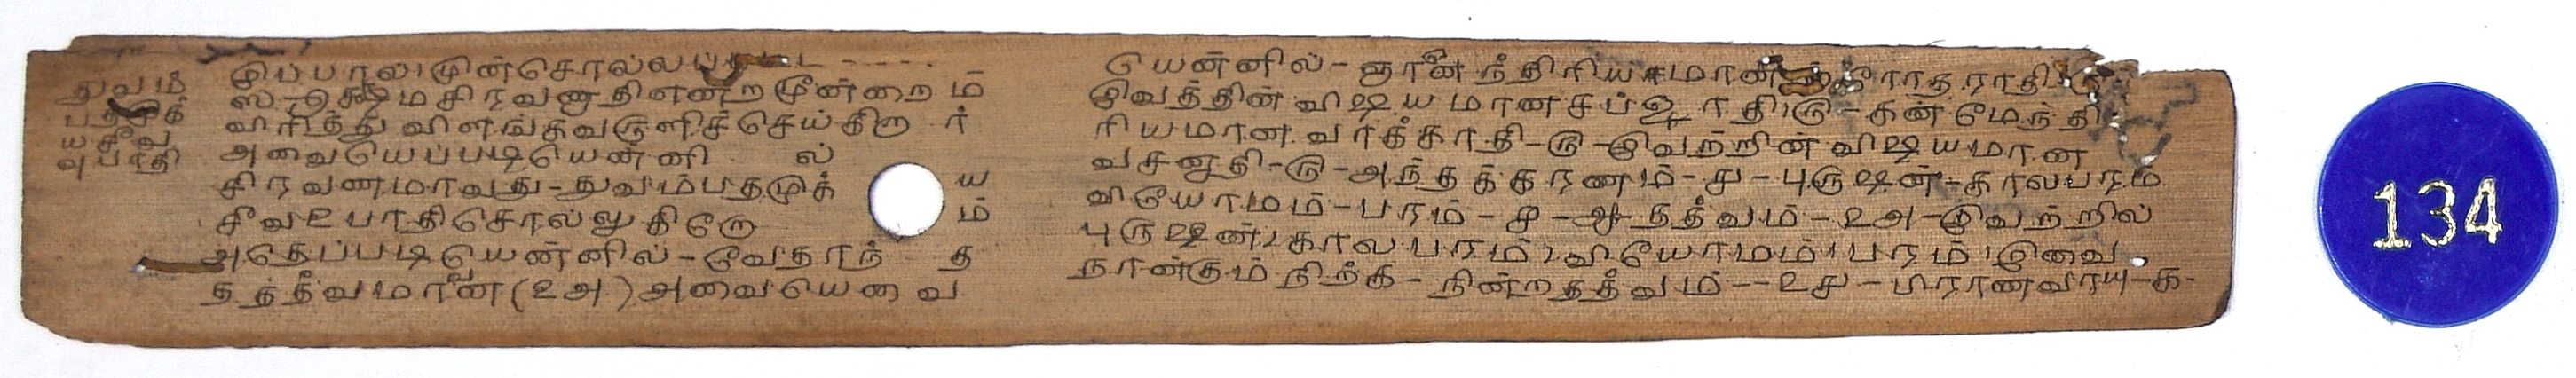 துவம்
பதமுத்
யசீவ
வுபாதி
இப்பால் முன்சொல்லப்
ஸ-சூக்ஷ்மசிரவணாதி என்ற மூன்றை ம்
விரித்து விளங்கவருளிச்செய்கிறா ர்
அவையெப்படியென்னி ல்
சிரவணமாவது-துவம்பதமுக் ய
சீவஉபாதிசொல்லுகிறே ம்
அதெப்படியென்னில்-வேதாந் த
தத்துவமான (உஅ) அவையெவை
யென்னில்-ஞானேந்திரியமான
இவத்தின் விஷயமானசப்தாதி ரு-கன்மேந்தி
ரியமான வாக்காதி-ரு-இவற்றின் விஷயமான
வசனாதி-ரு-அந்தக்கரணம்-ச-புருஷன்-காலபரம்
வியோமம்-பரம்-ச-ஆ-தத்வம்-உஅ-இவற்றில்
புருஷன், காலபரம், வியோமம், பரம், இவை
நான்கும் நிற்க-நின்றதத்வம்--உச-பிராணவாயு-க-
134